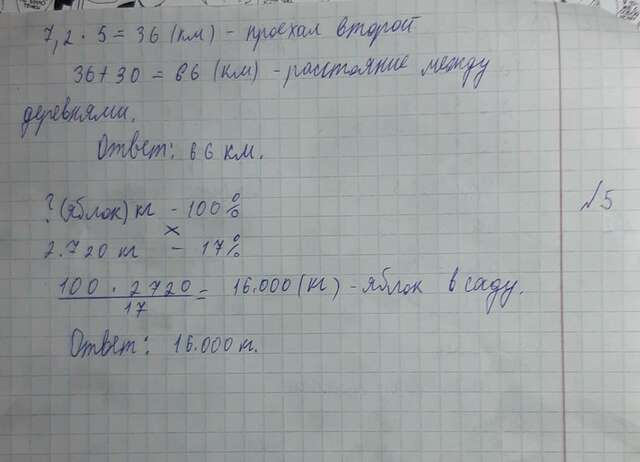 7,2 · 5 = 36 (км) - проехал второй
36 + 30 = 66 (км) - расстояние между
деревнями.
Ответ: 66 км.
№5
? (яблок) кг - 100%
×
2.720 кг - 17%
100 · 2720 / 17 = 16.000 (кг) - яблок в саду.
Ответ: 16.000 кг.